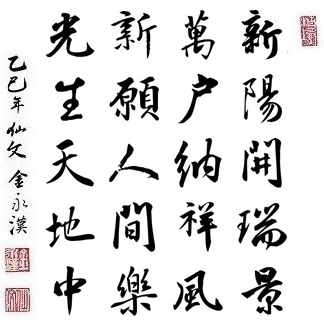 新陽開瑞景
萬户納祥風
新願人間樂
光生天地中
乙巳年仙文金永漢